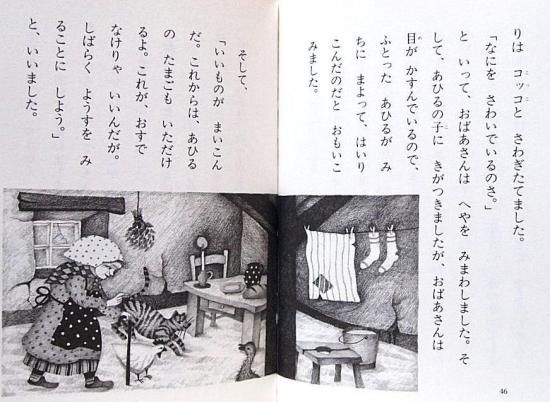 りは コッコと さわぎたてました。
「なにを さわいでいるのさ。」
と いって、おばあさんは へやを みまわしました。そ
して、あひるの子に きがつきましたが、おばあさんは
目が かすんでいるので、
ふとった あひるが み
ちに まよって、はいり
こんだのだと おもいこ
みました。
46
そして、
「いいものが まいこん
だ。これからは、あひる
の たまごも いただけ
るよ。これが、おすで
なけりゃ いいんだが。
しばらく ようすを み
ることに しよう。」
と、いいました。